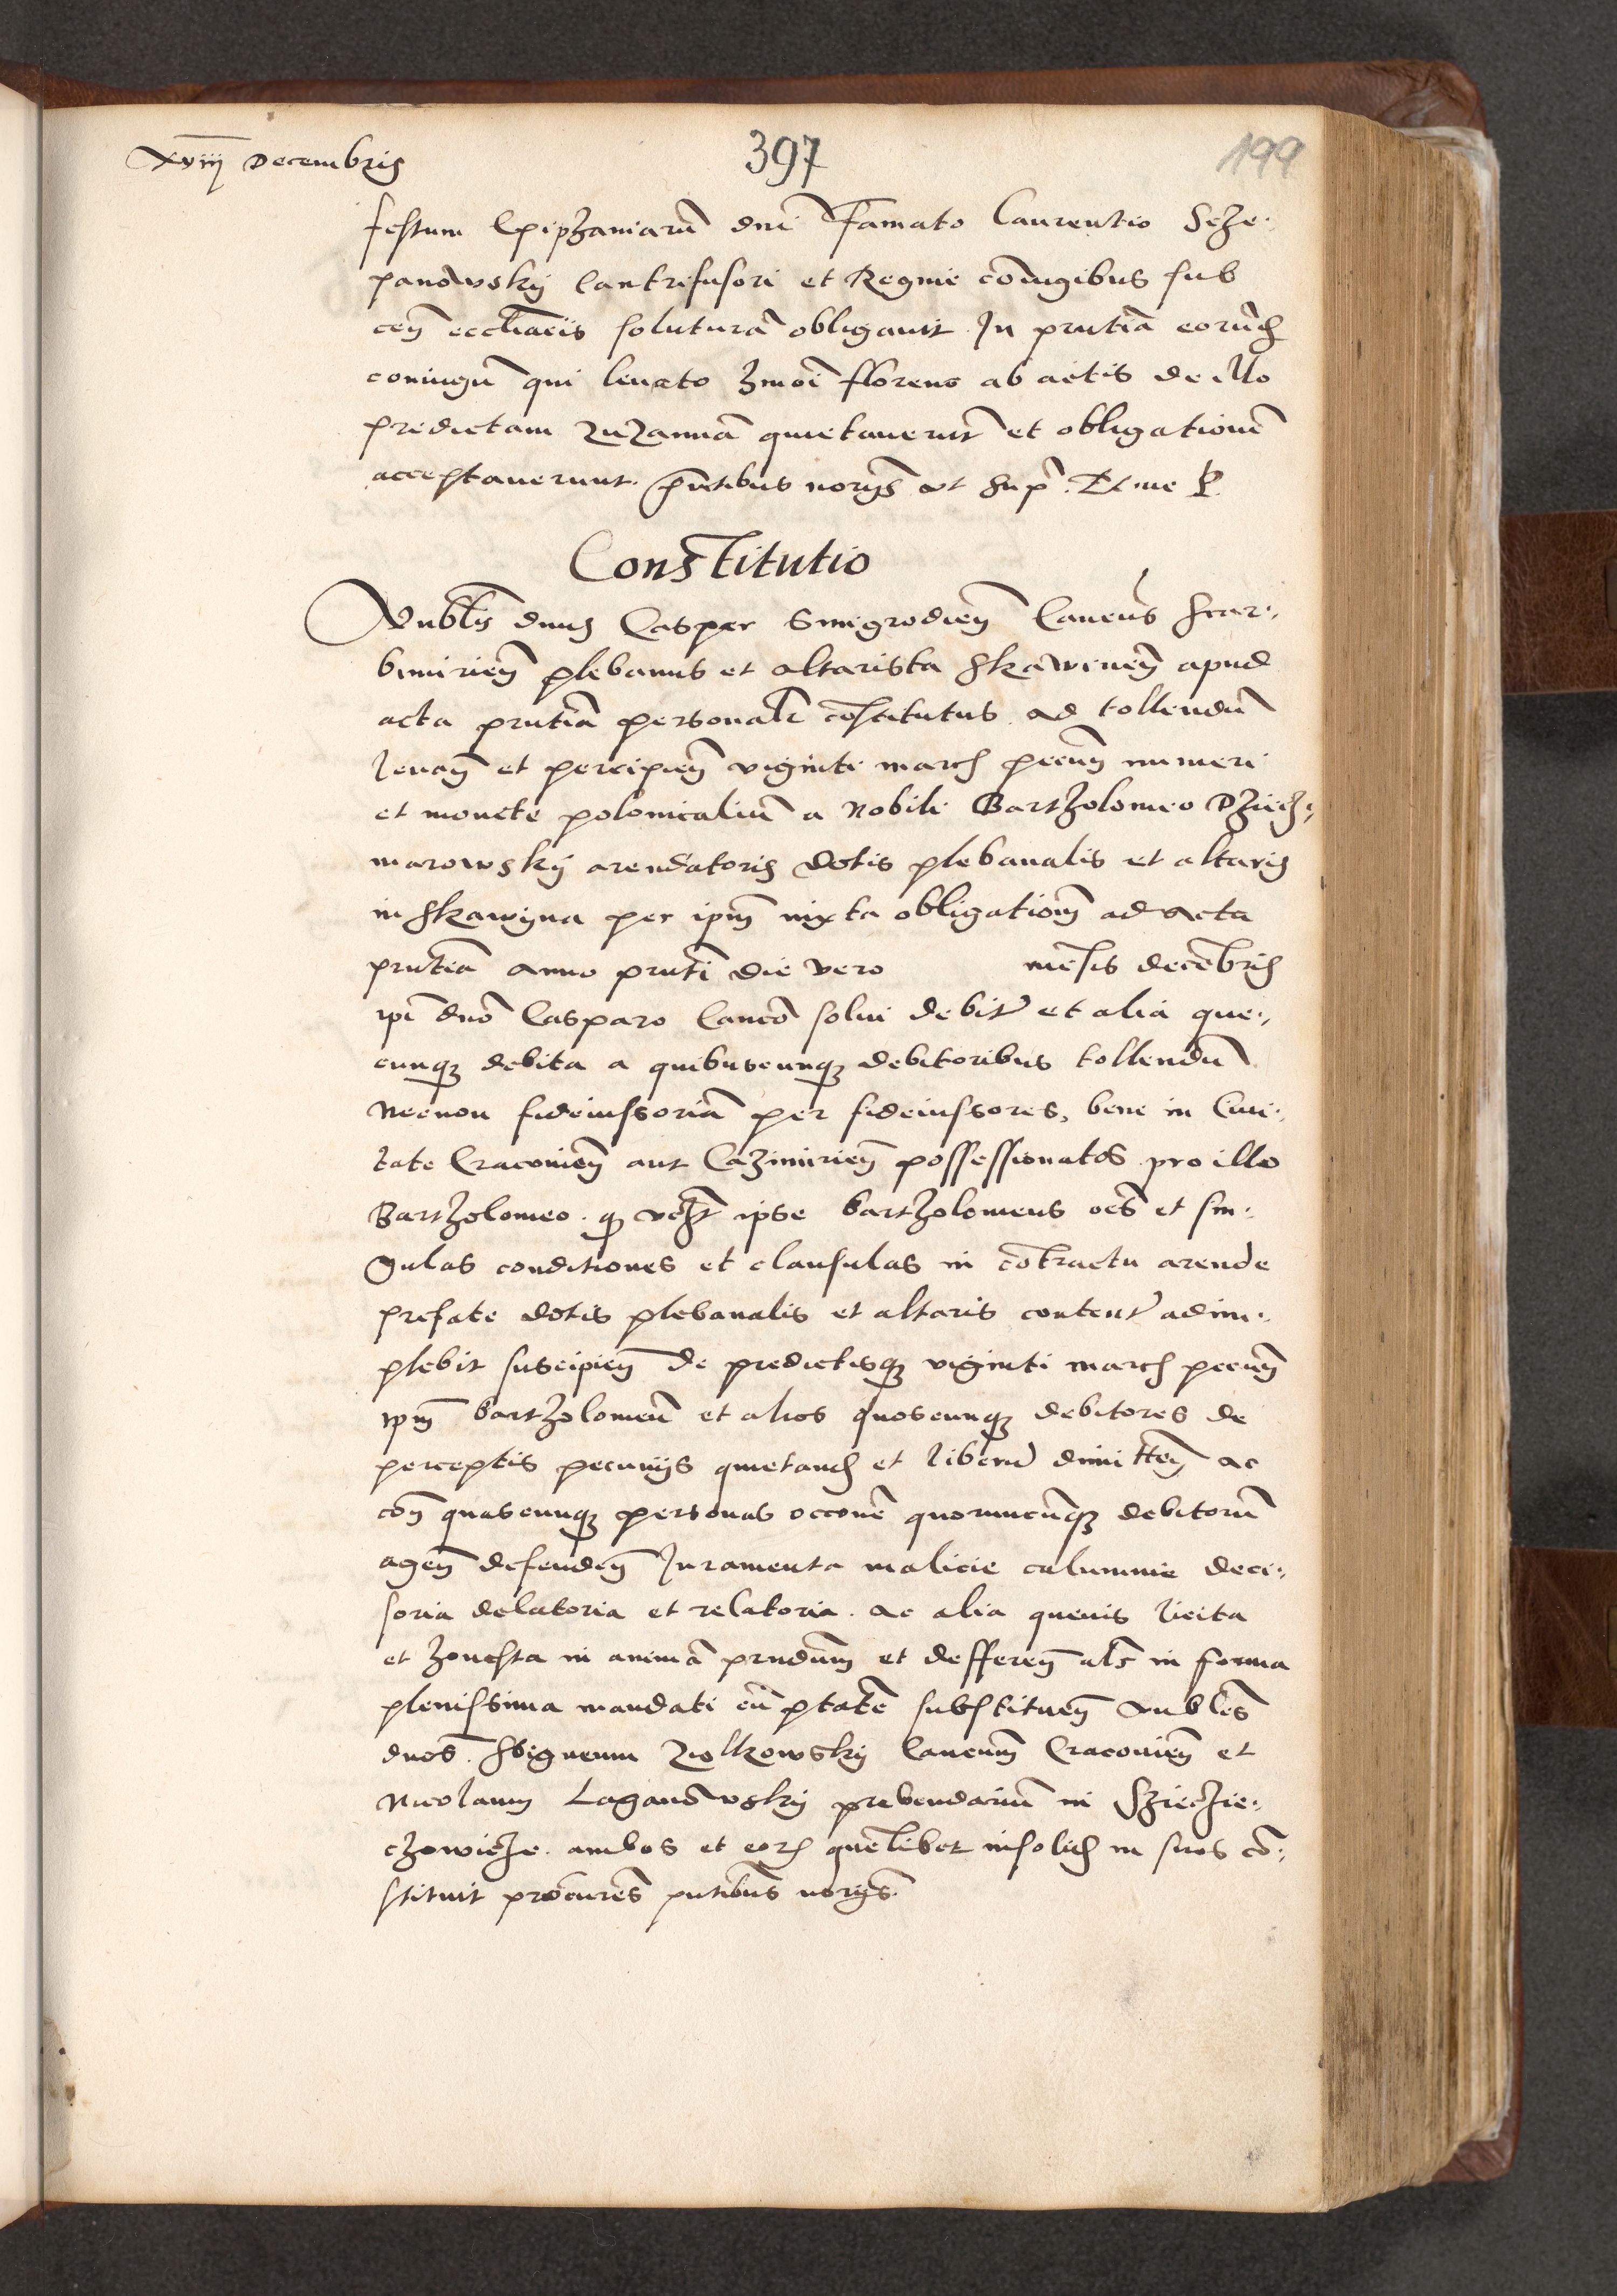 xviij Decembris
397
199
festum Epiphaniarũ dni Famato Laurentio Scze¬
panowsky Cantrifusori et Regine coniugibus sub
ceñ ecclĩacis soluturã obligauit In pñtia eorũd
coniugũ qui leuato hmoi floreno ab actis de illo
predictam Zuzannã quietauerũt et obligationẽ
acceptauerunt. pñtibus norijs vt supª. Et me
Constitutio
Vnblis dnus Caspar Smigrodieñ CanCus Scar¬
bimirieñ plebanus et altarista Skawineñ apud
acta pñtia personalr cõstitutus ad tollendũ
leuañ et percipieñ viginti march pecuñ numeri
et monete polonicaliũ a Nobili Bartholomeo Dziech¬
marowsky arendatoris dotis plebanalis et altaris
in Skawyna per ipm iuxta obligationẽ ad acta
pñtia anno pñti die vero mẽsis decẽbris
ipi dno Casparo Canco solui debit et alia que¬
cunqȝ debita a quibuscunqȝ debitoribus tollendũ
Necnon fideiussoriã per fideiussores, bene in Ciui¬
tate Cracovieñ aut Cazimirieñ possessionatos pro illo
Bartholomeo. qȝ ipse bartholomeus oẽs et sin¬
gulas conditiones et clausulas in cõtractu arende
prefate dotis plebanalis et altaris content adim¬
plebit suscipieñ de predictisqȝ viginti march pecuñ
ipm bartholomeũ et alios quoscunqȝ debitores de
perceptis pecunijs quietand et liberũ dimitteñ ac
coñ quascunqȝ personas occone quorumcũqȝ debitorũ
ageñ defendeñ Juramenta malicie calumnie deci¬
soria delatoria et relatoria. ac alia queuis licita
et honesta in animã prndum et defferreñ als in forma
plenissima mandati cũ ptate substitueñ vnbles
dnos. Sbigneum Zolkowsky Cancum Cracovieñ et
Nicolaum Laganowsky prebendariũ in Sziechie¬
czowicze. ambos et eorȝ quẽlibet insolid in suos cõ¬
stituit procures pñtibus norijs.